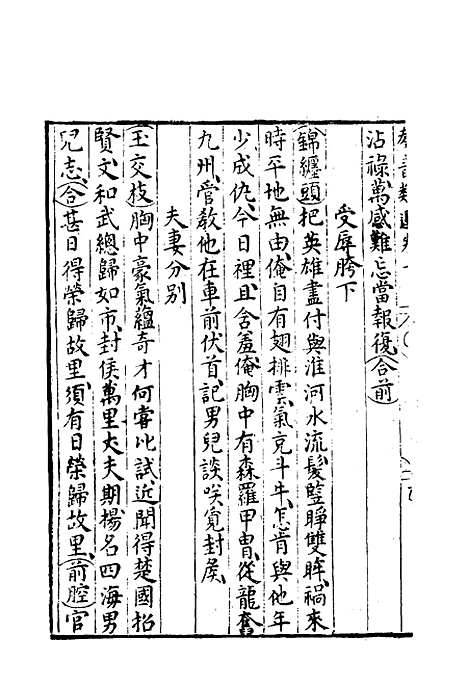 沾祿萬感難忘當報復合前
受辱胯下
錦纏頭把英雄盡付與淮河水流髮豎睜雙眸禍來
時平地無由俺自有翅排雲氣克斗牛怎肯與他年
少成仇今日裡且含羞俺胸中有森羅甲冑從龍奮
九州管教他在車前伏首記男兒談笑覓封矦
夫妻分別
玉交枝胸中豪氣蘊奇才何嘗比試近聞得楚國招
賢文和武總歸如市封侯萬里大夫期揚名四海男
兒志合甚日得榮歸故里須有日榮歸故里前腔官